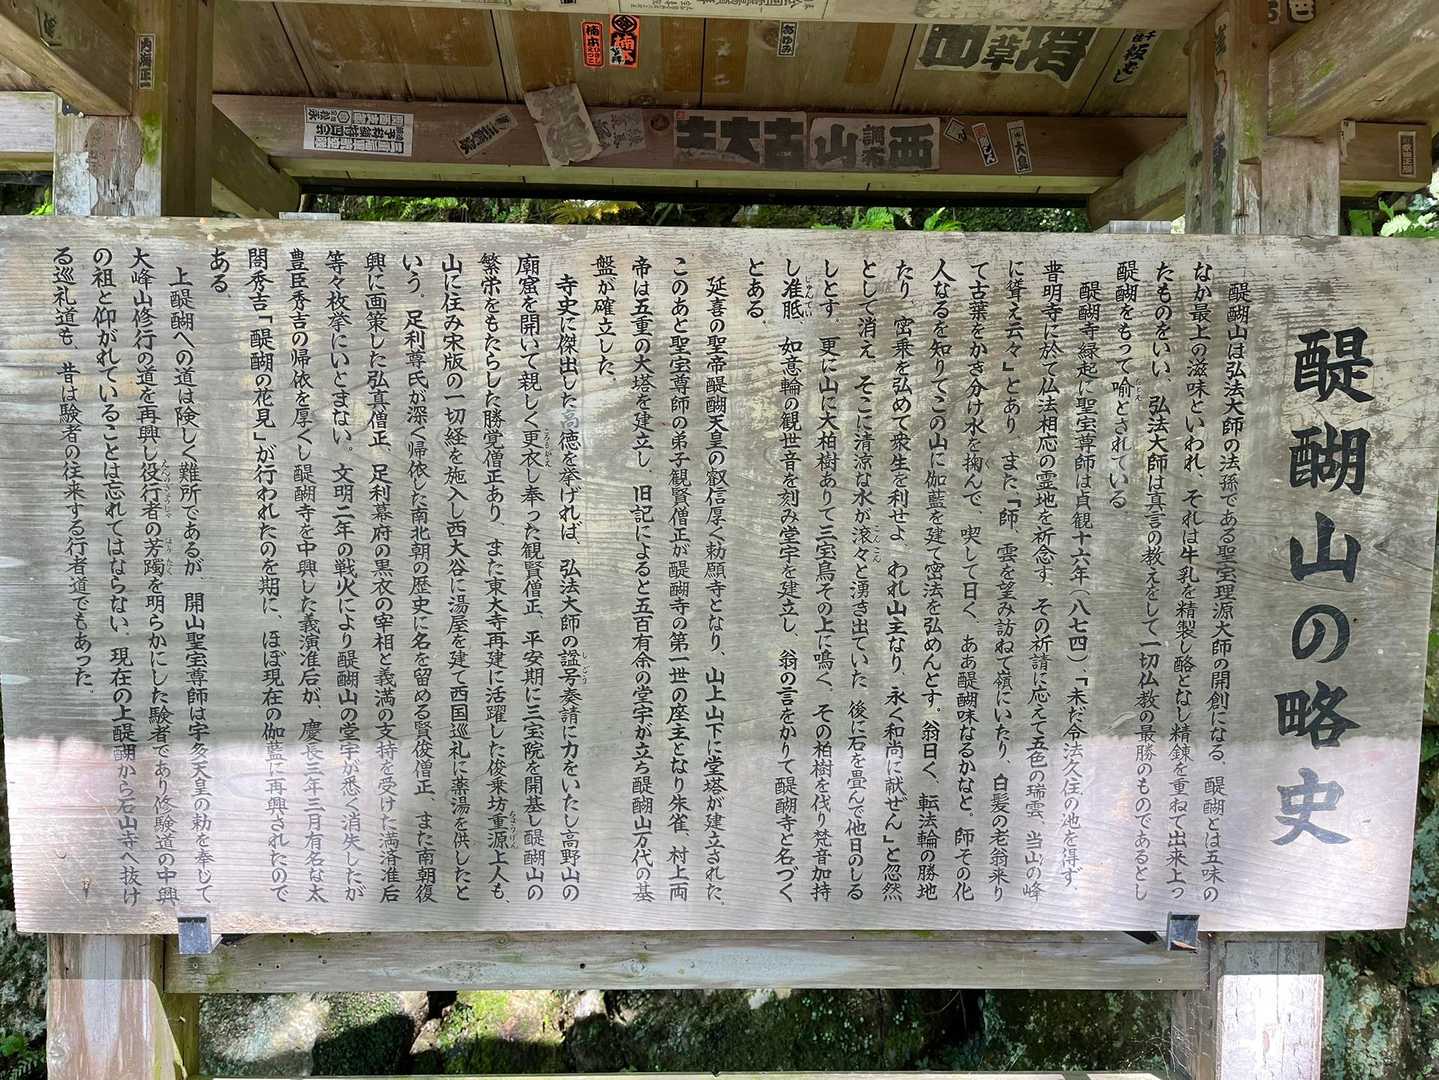 醍醐山の略史
醍醐山は弘法大師の法孫である聖宝理源大師の開創になる。醍醐とは五味の
なか最上の滋味といわれ、それは牛乳を精製し酪となし精錬を重ねて出来上っ
たものをいい、弘法大師は真言の教えをして一切仏教の最勝のものであるとし
醍醐をもって喩とされている
醍醐寺縁起に聖宝尊師は貞観十六年(八七四)、「未だ令法久住の池を得ず、
普明寺に於て仏法相応の霊地を祈念す、その祈請に応えて五色の瑞雲、当山の峰
に聳え云々」とあり、また「師、雲を望み訪ねて嶺にいたり、白髪の老翁来り
て古葉をかき分け水を掬んで、喫して曰く、ああ醍醐味なるかなと。師その化
人なるを知りてこの山に伽藍を建て密法を弘めんとす。翁曰く、転法輪の勝地
たり、密乗を弘めて衆生を利せよ、われ山主なり、永く和尚に献ぜん」と忽然
として消え、そこに清涼な水が滾々と湧き出ていた 後に石を畳んで他日のしる
しとす。更に山に大柏樹ありて三宝鳥その上に鳴く、その柏樹を伐り梵音加持
し准胝、如意輪の観世音を刻み堂宇を建立し、翁の言をかりて醍醐寺と名づく
とある。
延喜の聖帝醍醐天皇の叡信厚く勅願寺となり、山上山下に堂塔が建立された、
このあと聖宝尊師の弟子観賢僧正が醍醐寺の第一世の座主となり朱雀、村上両
帝は五重の大塔を建立し、旧記によると五百有余の堂宇が立ち醍醐山万代の基
盤が確立した。
寺史に傑出した高徳を挙げれば、弘法大師の諡号奏請に力をいたし高野山の
廟窟を開いて親しく更衣し奉った観賢僧正、平安期に三宝院を開基し醍醐山の
繁栄をもたらした勝覚僧正あり、また東大寺再建に活躍した俊乗坊重源上人も、
山に住み宋版の一切経を施入し西大谷に湯屋を建て西国巡礼に薬湯を供したと
いう。足利尊氏が深く帰依した南北朝の歴史に名を留める賢俊僧正、また南朝復
興に画策した弘真僧正、足利幕府の黒衣の宰相と義満の支持を受けた満済准后
等々枚挙にいとまない。文明二年の戦火により醍醐山の堂宇が悉く消失したが
豊臣秀吉の帰依を厚くし醍醐寺を中興した義演准后が、慶長三年三月有名な太
閤秀吉「醍醐の花見」が行われたのを期に、ほぼ現在の伽藍に再興されたので
ある。
上醍醐への道は険しく難所であるが、開山聖宝尊師は宇多天皇の勅を奉じて
大峰山修行の道を再興し役行者の芳躅を明らかにした験者であり修験道の中興
の祖と仰がれていることは忘れてはならない、現在の上醍醐から石山寺へ抜け
る巡礼道も、昔は験者の往来する行者道でもあった。
内海正一
楠本
あゆみ
古大土
西山
調布